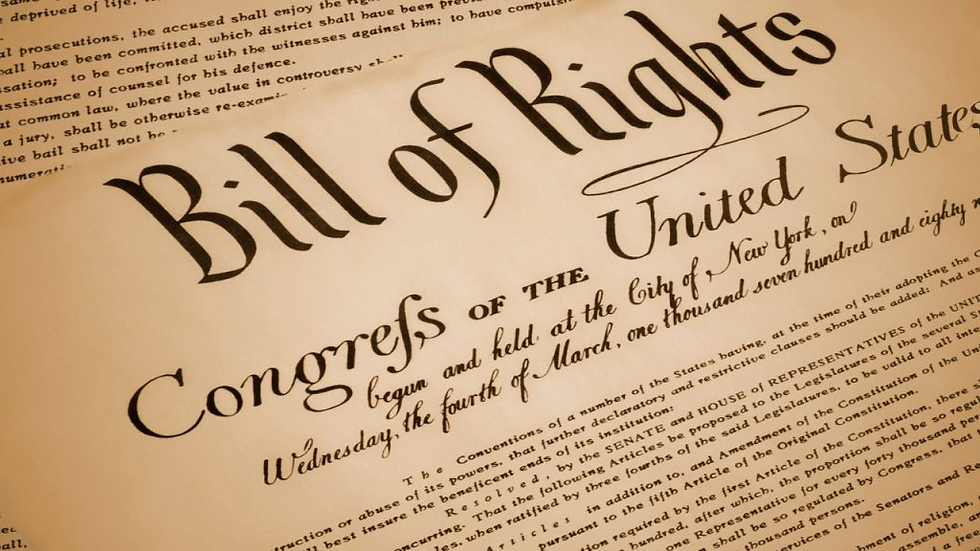 deprived of life,
al prosecutions, the accused shall enjoy the
hall have been committed, which district shall have been
sation; to be confronted with the witnesses against him; to have
ssistance of counsel for his defence.
t common law, where the value in controversy
a jury, shall be otherwise
ive bail shall not be
Bill of Rights
Congreſs OF THE United States
begun and held at the City of New York, on
Wednesday, the fourth of March, one thousand seven hundred and eighty
The Conventions of a number of the States having, at the time of their adopting the
ruction or abuse of its powers, that further declaratory and restrictive clauses should be added: And
ll best insure the beneficent ends of its institution:
Resolved, by the SENATE and HOUSE of REPRESENTATIVES of the
oncurring. That the following Articles be proposed to the Legislatures of the several
les, when ratified by three fourths of the said Legislatures, to be valid to all
Articles in addition to, and Amendment of the Constitution of the
pursuant to the fifth Article of the Original Constitution.
required by the first Article of the Constitution, there
hundred, after which, the proportion shall be so
one Representative for every forty thousand
shall be so regulated by Congress, that
thousand persons.
of the Senators and
of religion,
assemble,